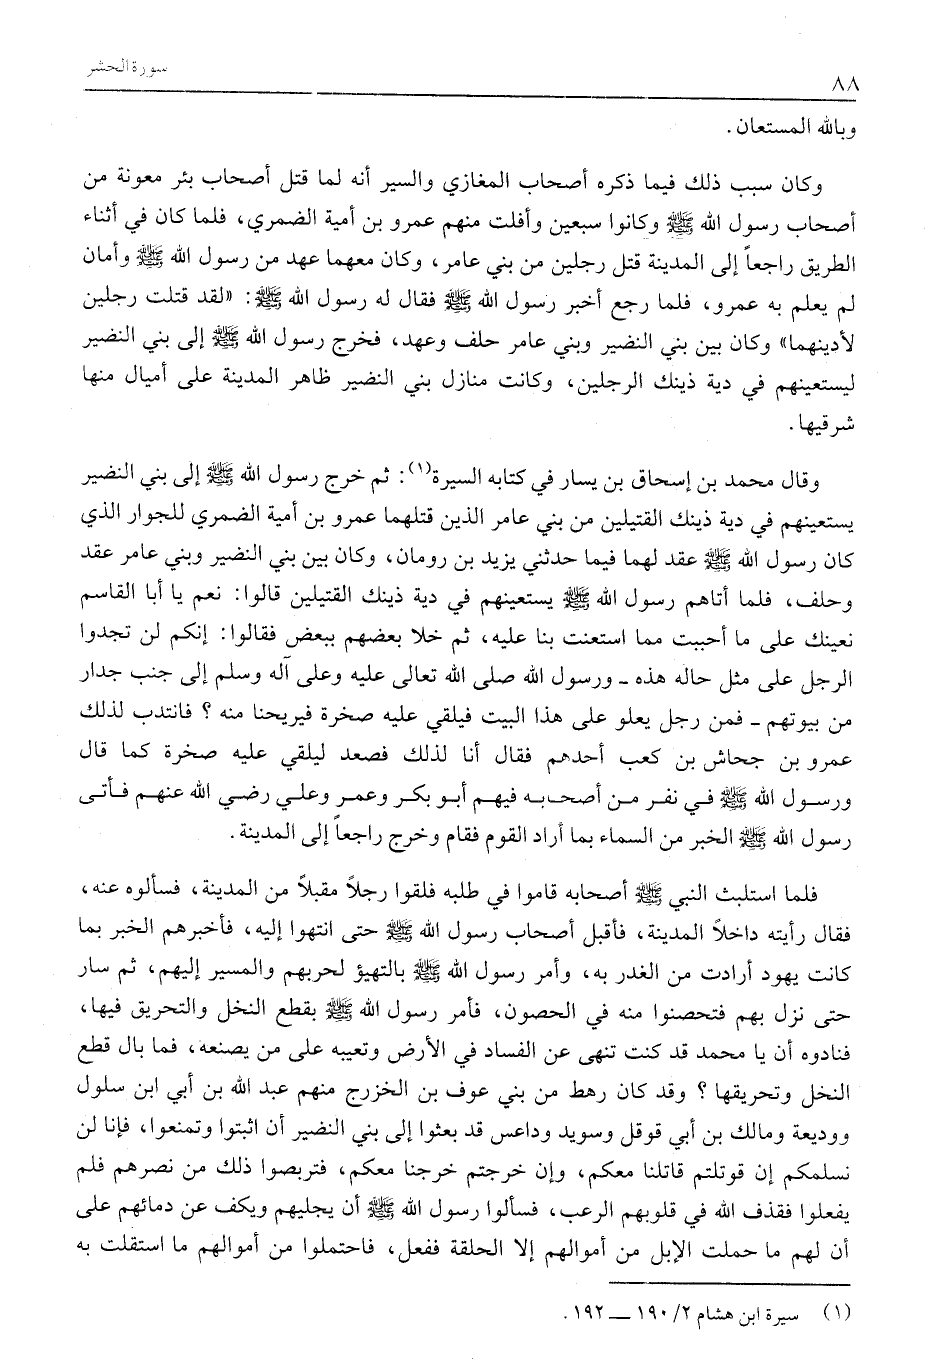 سورة الحشر
٨٨
وبالله المستعان .
وكان سبب ذلك فيما ذكره أصحاب المغازي والسير أنه لما قتل أصحاب بئر معونة من
أصحاب رسول الله ﷺ وكانوا سبعين وأفلت منهم عمرو بن أمية الضمري، فلما كان في أثناء
الطريق راجعاً إلى المدينة قتل رجلين من بني عامر، وكان معهما عهد من رسول الله ﷺ وأمان
لم يعلم به عمرو، فلما رجع أخبر رسول الله ﷺ فقال له رسول الله ﷺ: «لقد قتلت رجلين
لأدينهما» وكان بين بني النضير وبني عامر حلف وعهد، فخرج رسول الله ﷺ إلى بني النضير
ليستعينهم في دية ذينك الرجلين، وكانت منازل بني النضير ظاهر المدينة على أميال منها
شرقيها .
وقال محمد بن إسحاق بن يسار في كتابه السيرة(١): ثم خرج رسول الله ﷺ إلى بني النضير
يستعينهم في دية ذينك القتيلين من بني عامر الذين قتلهما عمرو بن أمية الضمري للجوار الذي
كان رسول الله ﷺ عقد لهما فيما حدثني يزيد بن رومان، وكان بين بني النضير وبني عامر عقد
وحلف، فلما أتاهم رسول الله ﷺ يستعينهم في دية ذينك القتيلين قالوا: نعم يا أبا القاسم
نعينك على ما أحببت مما استعنت بنا عليه، ثم خلا بعضهم ببعض فقالوا: إنكم لن تجدوا
الرجل على مثل حاله هذه ـ ورسول الله صلى الله تعالى عليه وعلى آله وسلم إلى جنب جدار
من بيوتهم ـ فمن رجل يعلو على هذا البيت فيلقي عليه صخرة فيريحنا منه ؟ فانتدب لذلك
عمرو بن جحاش بن كعب أحدهم فقال أنا لذلك فصعد ليلقي عليه صخرة كما قال
ورسول الله ﷺ في نفر من أصحابه فيهم أبو بكر وعمر وعلي رضي الله عنهم فأتى
رسول الله ﷺ الخبر من السماء بما أراد القوم فقام وخرج راجعاً إلى المدينة .
فلما استلبث النبي ﷺ أصحابه قاموا في طلبه فلقوا رجلاً مقبلاً من المدينة، فسألوه عنه،
فقال رأيته داخلاً المدينة، فأقبل أصحاب رسول الله ﷺ حتى انتهوا إليه، فأخبرهم الخبر بما
كانت يهود أرادت من الغدر به، وأمر رسول الله ﷺ بالتهيؤ لحربهم والمسير إليهم، ثم سار
حتى نزل بهم فتحصنوا منه في الحصون، فأمر رسول الله ﷺ بقطع النخل والتحريق فيها،
فنادوه أن يا محمد قد كنت تنهى عن الفساد في الأرض وتعيبه على من يصنعه، فما بال قطع
النخل وتحريقها ؟ وقد كان رهط من بني عوف بن الخزرج منهم عبد الله بن أبي ابن سلول
ووديعة ومالك بن أبي قوقل وسويد وداعس قد بعثوا إلى بني النضير أن اثبتوا وتمنعوا، فإنا لن
نسلمكم إن قوتلتم قاتلنا معكم، وإن خرجتم خرجنا معكم، فتربصوا ذلك من نصرهم فلم
يفعلوا فقذف الله في قلوبهم الرعب، فسألوا رسول الله ﷺ أن يجليهم ويكف عن دمائهم على
أن لهم ما حملت الإبل من أموالهم إلا الحلقة ففعل، فاحتملوا من أموالهم ما استقلت به
(١) سيرة ابن هشام ٢/ ١٩٠ ـــ ١٩٢ .